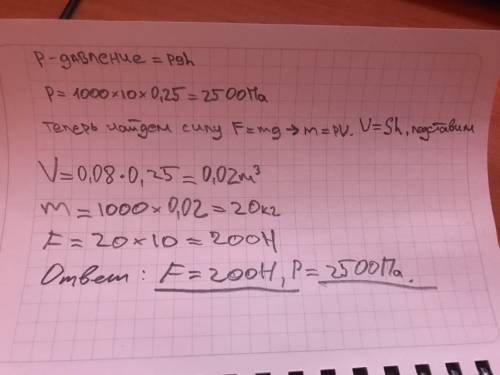 P-давление = pgh
P = 1000×10×0,25 = 2500Па
теперь найдем силу F=mg → m=PV. V=Sh, подставим
V = 0,08·0,25 = 0,02м³
m = 1000×0,02 = 20кг
F = 20×10 = 200Н
Ответ: F=200Н, P=2500Па.